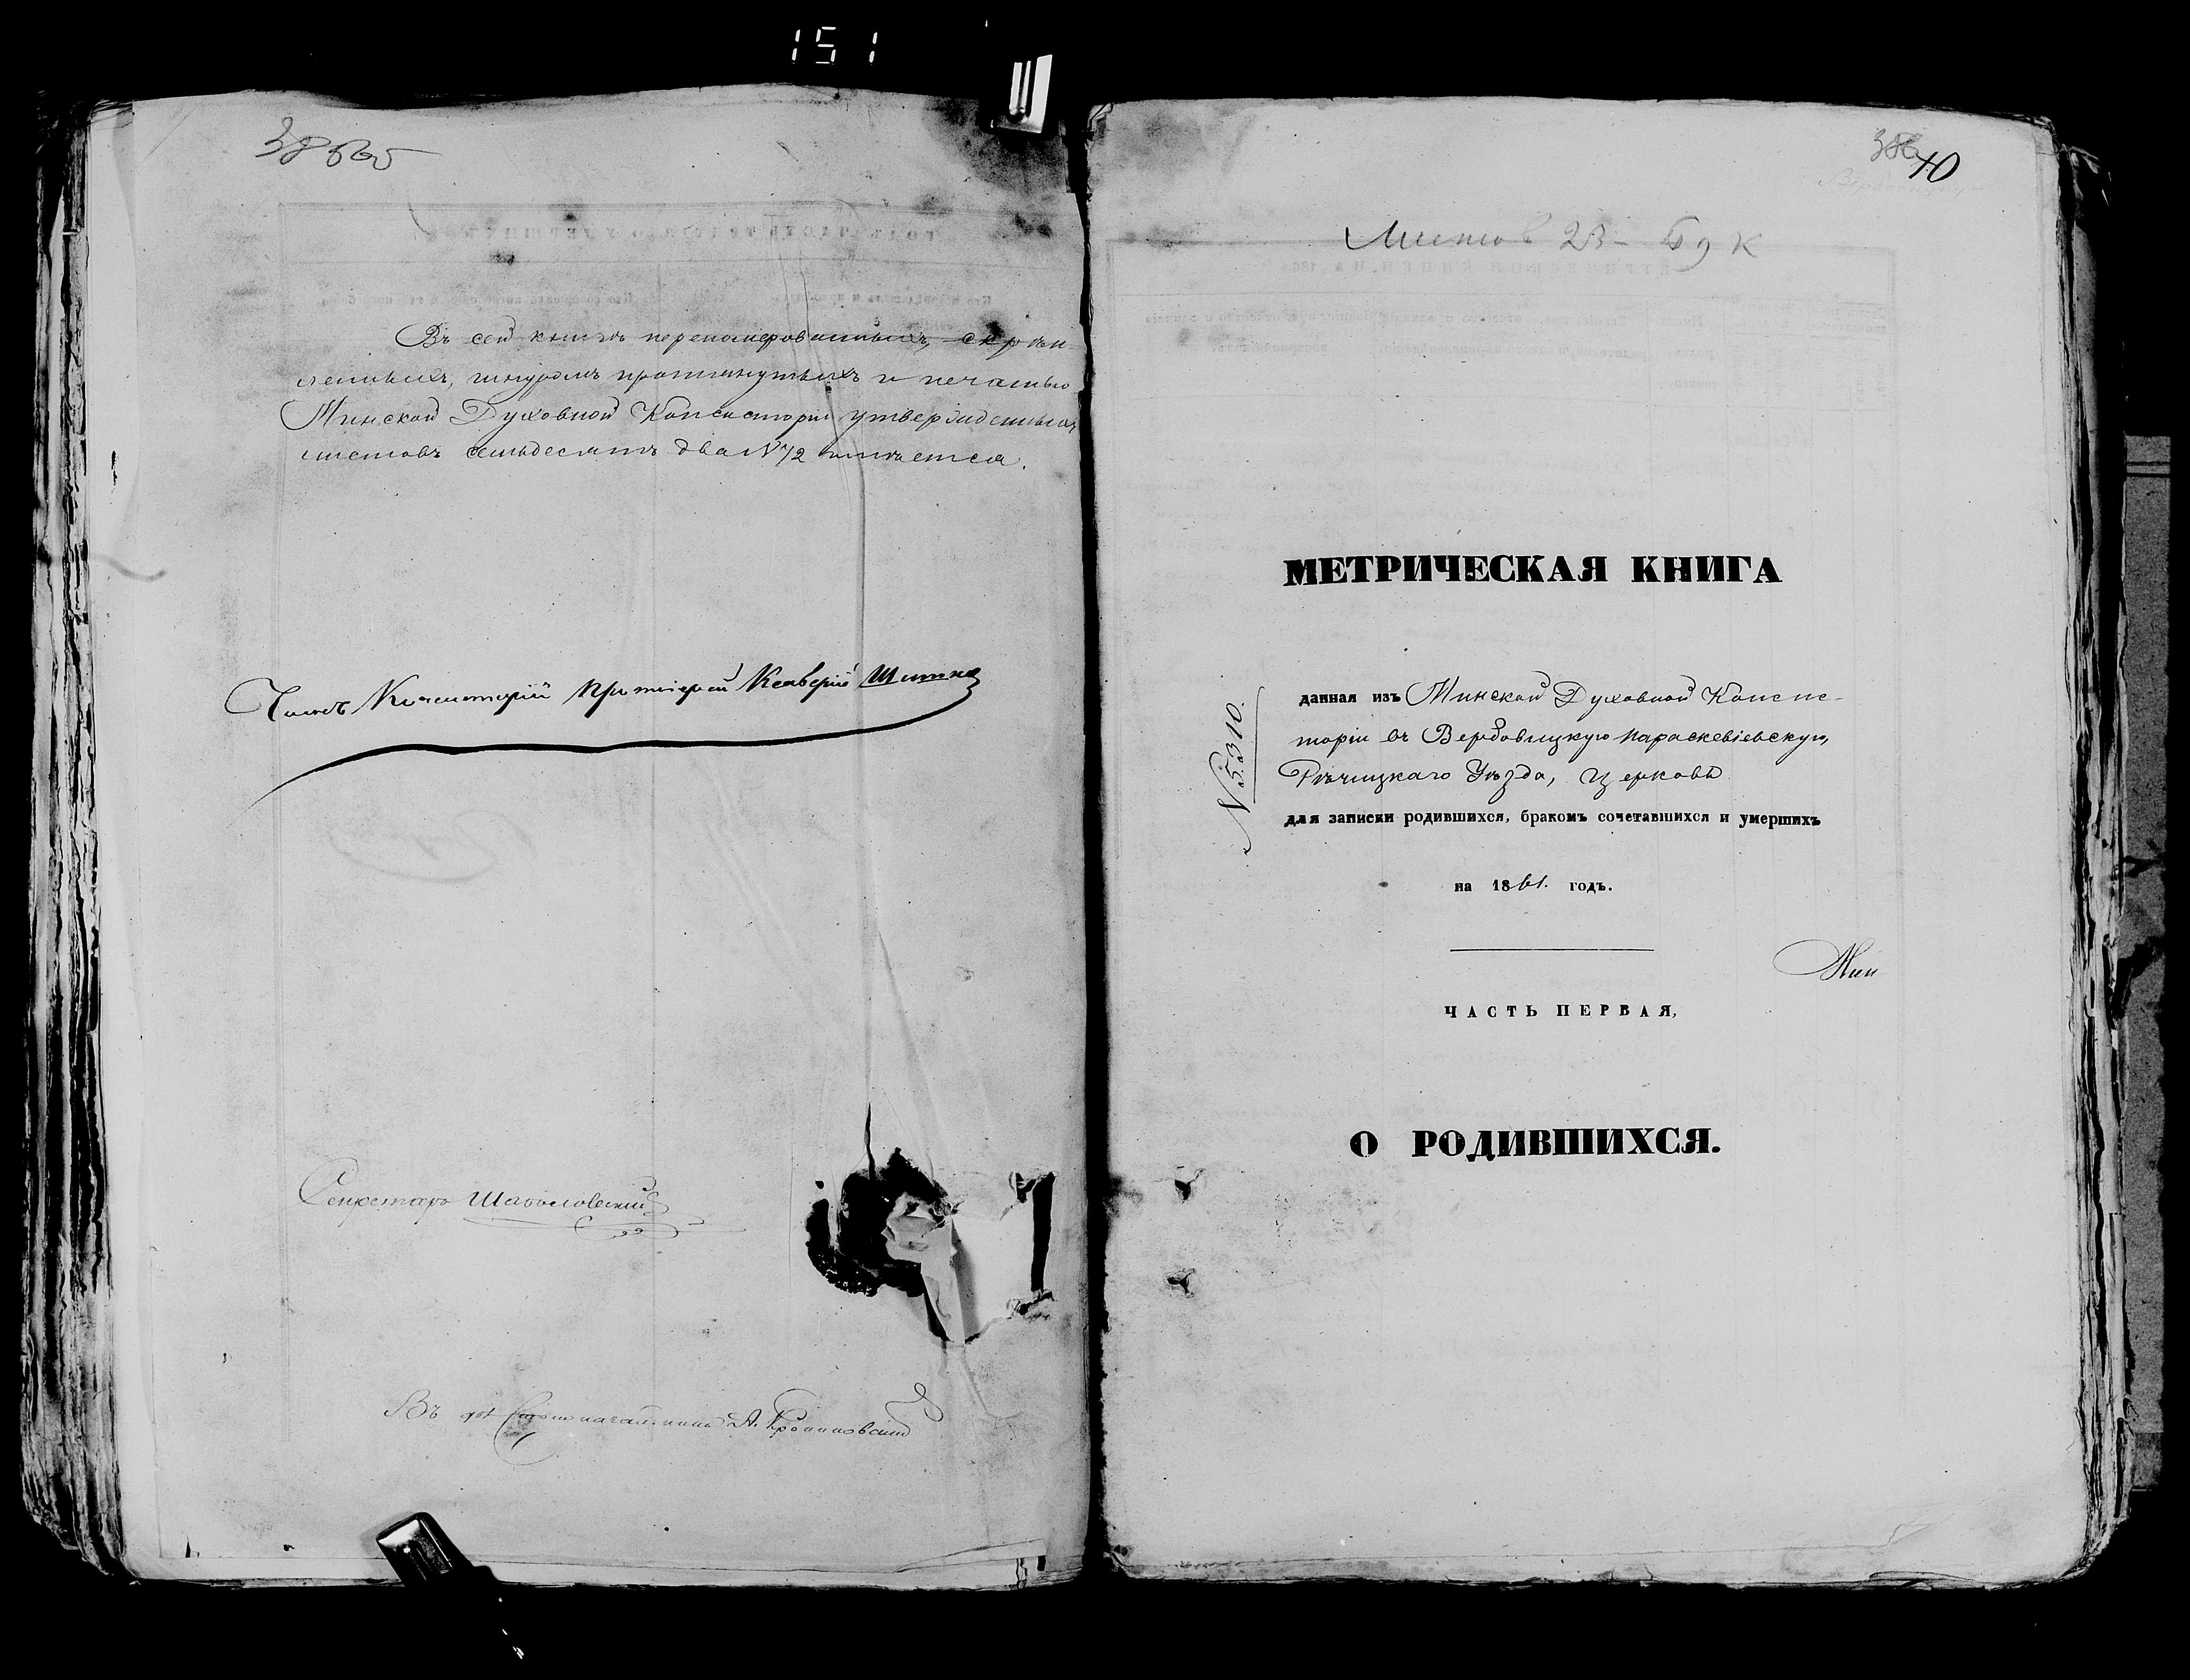 151
385об
Въ сей книгѣ перенумерованныхъ, скрѣп-
ленныхъ, шнуромъ протянутыхъ и печатью
Минской Духовной Консисторіи утвержденныхъ
листовъ семьдесятъ два N 72 имѣется.
Членъ Консисторіи Протоіерей
Секретарь
Въ Столоначальника А.
40
Листов 23 -
МЕТРИЧЕСКАЯ КНИГА
N 5310.
данная изъ Минской Духовной Консис-
торіи въ Вербовицкую Параскевіевскую,
Рѣчицкаго Уѣзда, Церковь
для записки родившихся, бракомъ сочетавшихся и умершихъ
на 1861. годъ.
ЧАСТЬ ПЕРВАЯ,
О РОДИВШИХСЯ.